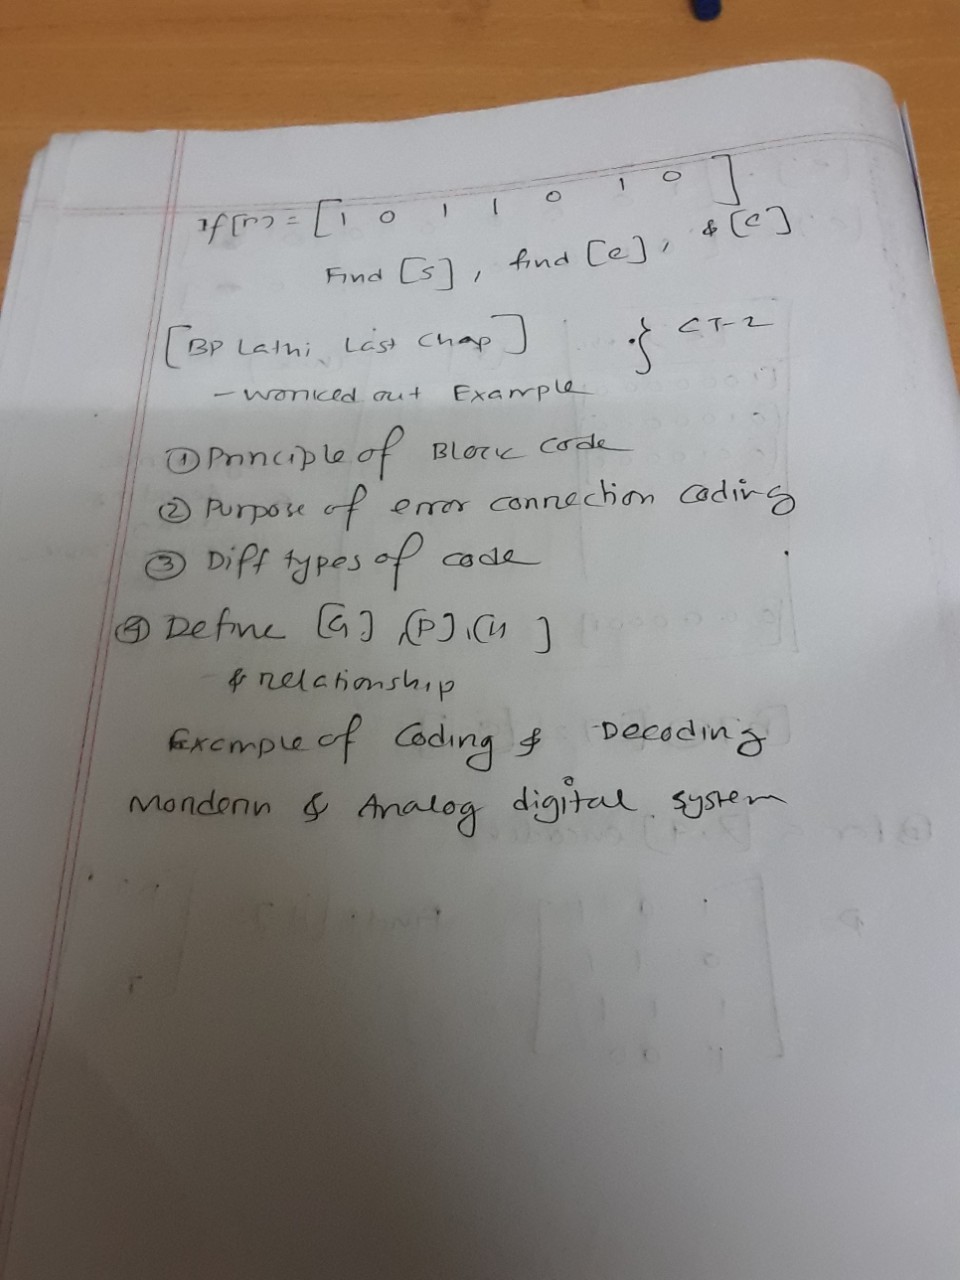 If [r] = [1 0 1 1 0 1 0]
Find [s], find [e], & [c]
[BP Lathi, Last Chap] } CT-2
- worked out Example
① Principle of Block code
② Purpose of error connection coding
③ Diff types of code
④ Define [G], [P], [H]
& relationship
Example of Coding & Decoding
Mondern & Analog digital system